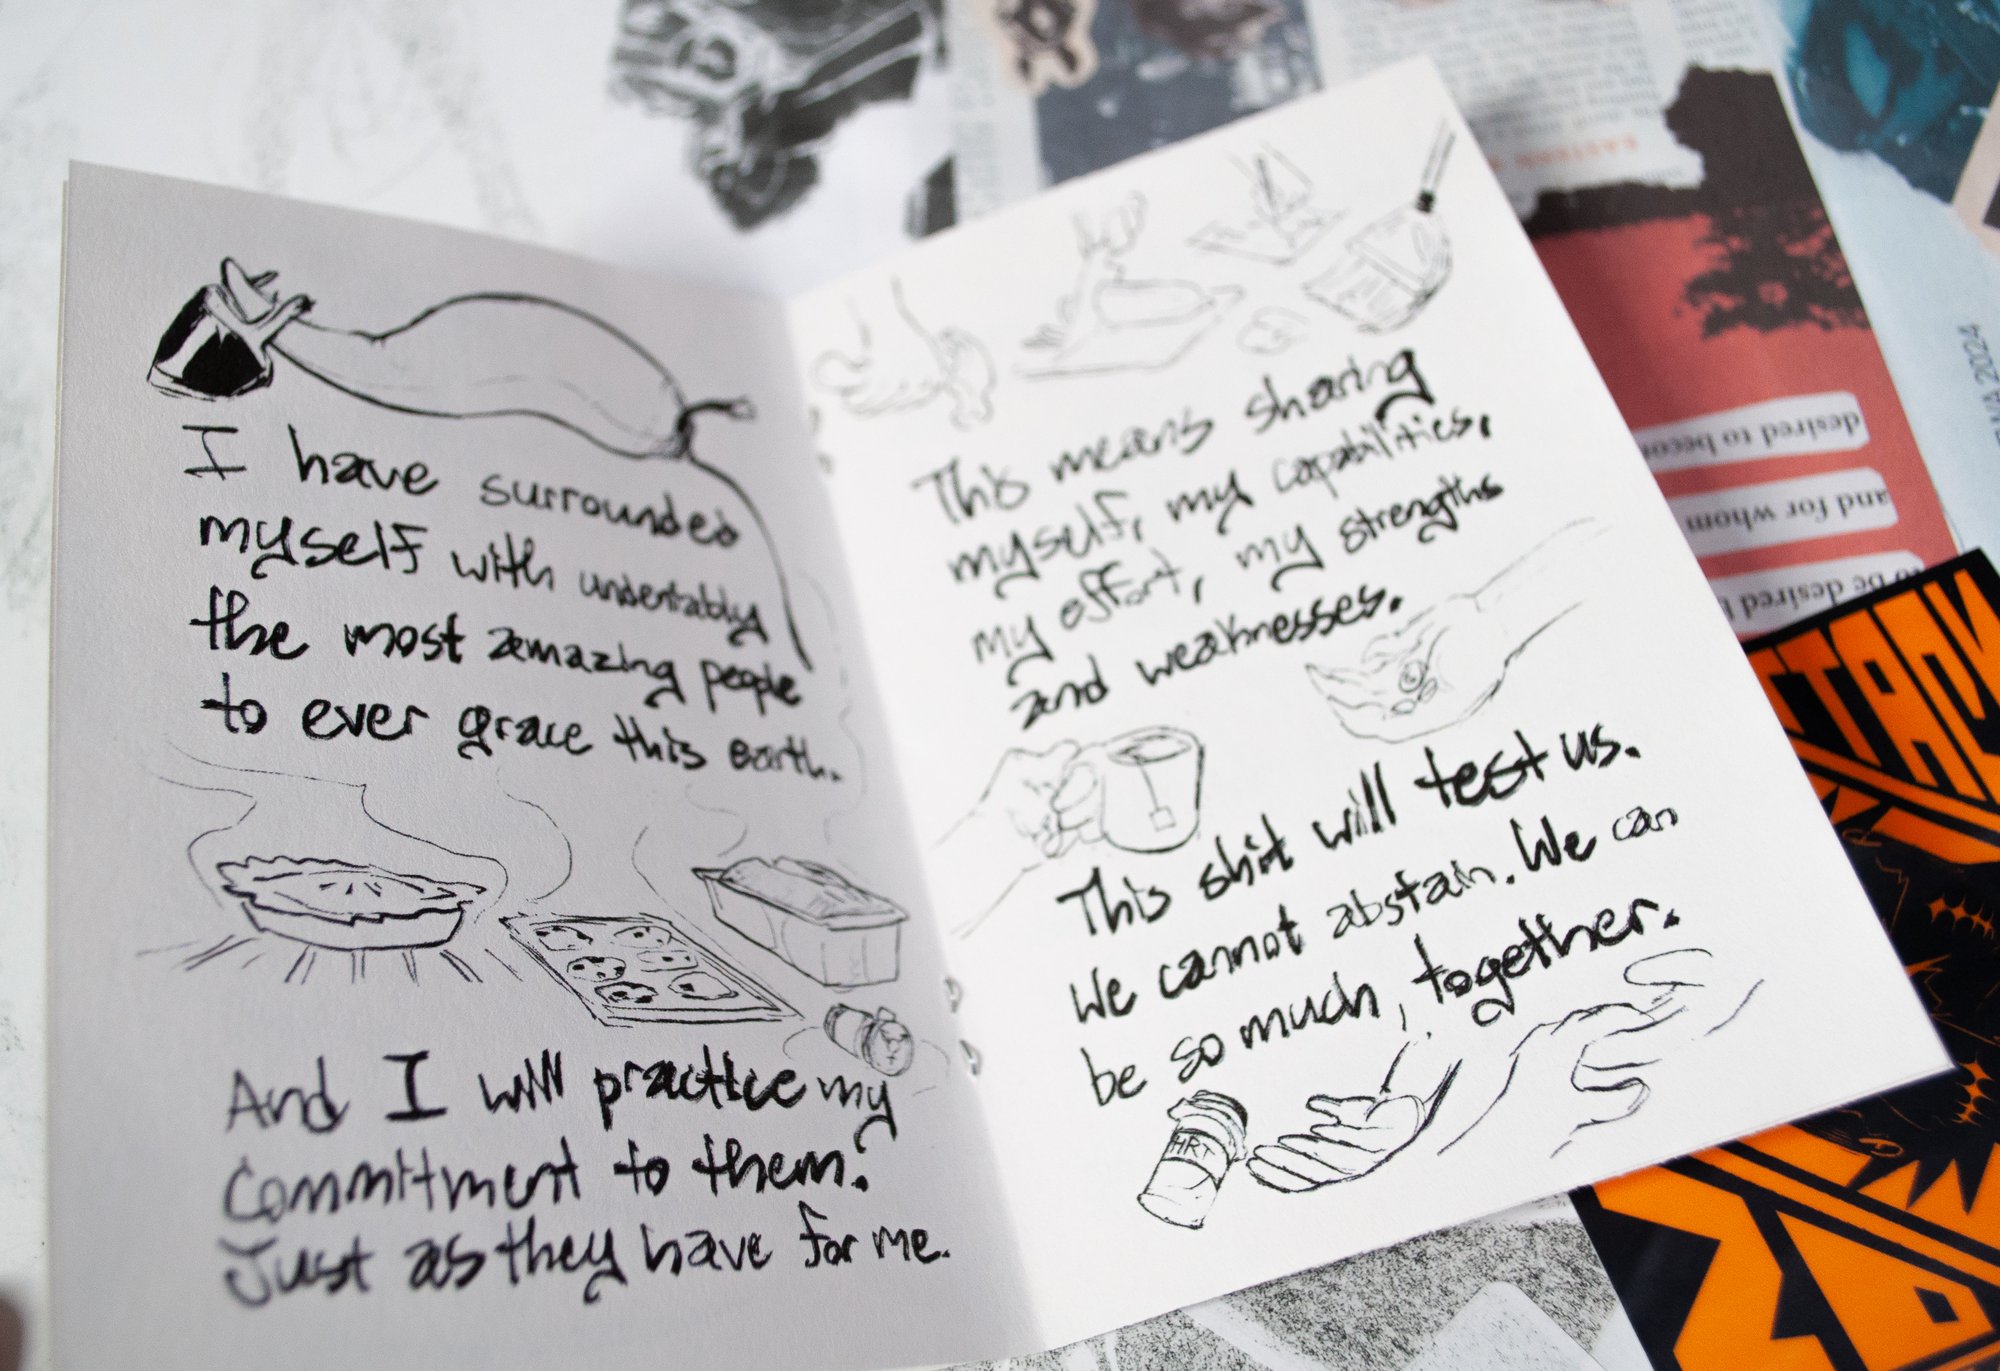 I have surrounded
myself with undeniably
the most amazing people
to ever grace this earth.
And I will practice my
commitment to them.
Just as they have for me.
This means sharing
myself, my capabilities,
my effort, my strengths
and weaknesses.
This shit will test us.
We cannot abstain. We can
be so much, together.
HRT
desired to becom
and for whom
to be desired b
2024